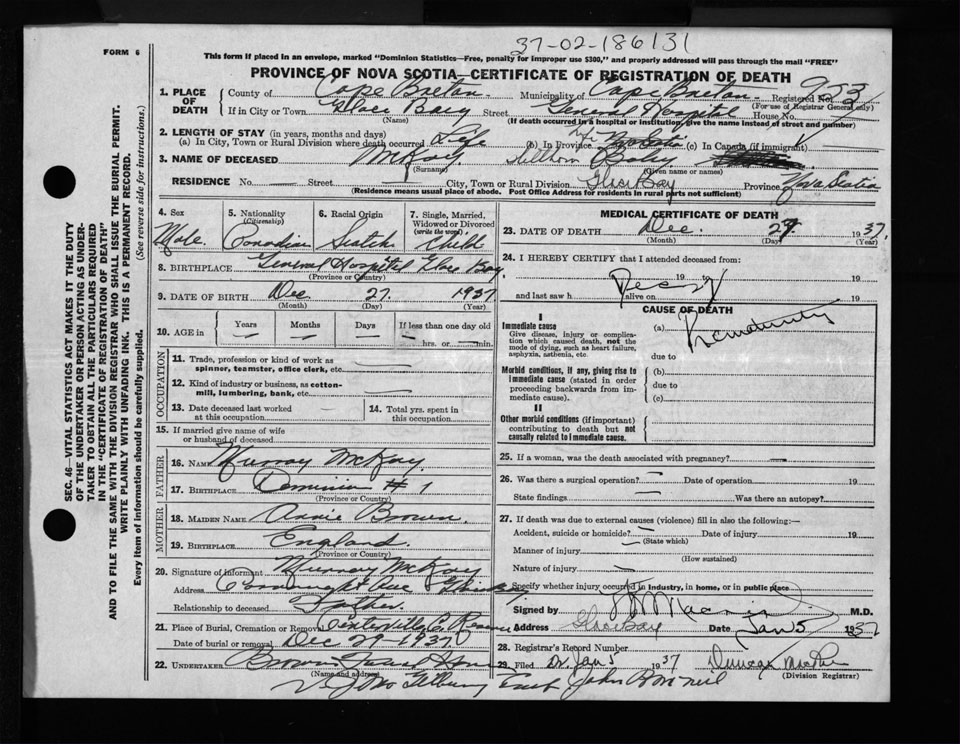 37-02-186131
FORM 6
This form if placed in an envelope, marked "Dominion Statistics—Free, penalty for improper use $300," and properly addressed will pass through the mail "FREE"
PROVINCE OF NOVA SCOTIA—CERTIFICATE OF REGISTRATION OF DEATH
1. PLACE OF DEATH County of Cape Breton Municipality of Cape Breton Registered No. 953
(For use of Registrar General only)
If in City or Town Glace Bay Street General Hospital House No.
(Name) (If death occurred in a hospital or institution, give the name instead of street and number)
2. LENGTH OF STAY (in years, months and days)
(a) In City, Town or Rural Division where death occurred Life (b) In Province (c) In Canada (if immigrant)
3. NAME OF DECEASED McKay Stillborn Baby
(Surname) (Given name or names)
RESIDENCE No. — Street — City, Town or Rural Division Glace Bay Province Nova Scotia
(Residence means usual place of abode. Post Office Address for residents in rural parts not sufficient)
4. Sex Male
5. Nationality (Citizenship) Canadian
6. Racial Origin Scotch
7. Single, Married, Widowed or Divorced (write the word) Child
8. BIRTHPLACE General Hospital Glace Bay
(Province or Country)
9. DATE OF BIRTH Dec 27 1937
(Month) (Day) (Year)
10. AGE in Years Months Days If less than one day old
hrs. or min.
OCCUPATION
11. Trade, profession or kind of work as spinner, teamster, office clerk, etc.
12. Kind of industry or business, as cotton-mill, lumbering, bank, etc.
13. Date deceased last worked at this occupation
14. Total yrs. spent in this occupation
15. If married give name of wife or husband of deceased
FATHER
16. NAME Murray McKay
17. BIRTHPLACE Dominion # 1
(Province or Country)
MOTHER
18. MAIDEN NAME Annie Brown
19. BIRTHPLACE England
(Province or Country)
20. Signature of informant Murray McKay
Address Connaught Ave
Relationship to deceased Father
21. Place of Burial, Cremation or Removal Centerville C. Reserve
Date of burial or removal Dec 29 - 1937
22. UNDERTAKER Brown
(Name and address)
MEDICAL CERTIFICATE OF DEATH
23. DATE OF DEATH Dec. 27 1937
(Month) (Day) (Year)
24. I HEREBY CERTIFY that I attended deceased from:
19 to 19
and last saw h alive on 19
CAUSE OF DEATH
I
Immediate cause
Give disease, injury or complication which caused death, not the mode of dying, such as heart failure, asphyxia, asthenia, etc.
(a) Prematurity
due to
Morbid conditions, if any, giving rise to immediate cause (stated in order proceeding backwards from immediate cause).
(b)
due to
(c)
II
Other morbid conditions (if important) contributing to death but not causally related to immediate cause.
25. If a woman, was the death associated with pregnancy?
26. Was there a surgical operation? — Date of operation 19
State findings — Was there an autopsy?
27. If death was due to external causes (violence) fill in also the following:—
Accident, suicide or homicide? Date of injury 19
(State which)
Manner of injury
(How sustained)
Nature of injury
Specify whether injury occurred in industry, in home, or in public place
Signed by M.D.
Address Glace Bay Date Jan 5 1937
28. Registrar's Record Number
29. Filed Jan 5 1937 Duncan
(Division Registrar)
SEC. 46—VITAL STATISTICS ACT MAKES IT THE DUTY
OF THE UNDERTAKER OR PERSON ACTING AS UNDER-
TAKER TO OBTAIN ALL THE PARTICULARS REQUIRED
IN THE "CERTIFICATE OF REGISTRATION OF DEATH"
AND TO FILE THE SAME WITH THE DIVISION REGISTRAR WHO SHALL ISSUE THE BURIAL PERMIT.
WRITE PLAINLY WITH UNFADING INK. THIS IS A PERMANENT RECORD.
Every item of information should be carefully supplied. (See reverse side for instructions.)